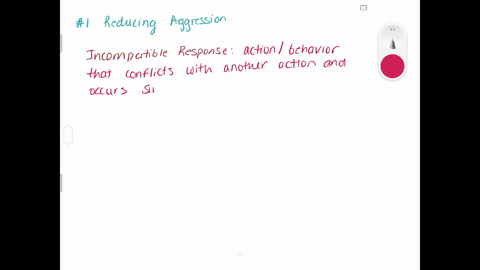 #1 Reducing Aggression
Incompertible Response: action/behavior
that conflicts with another action and
occurs si